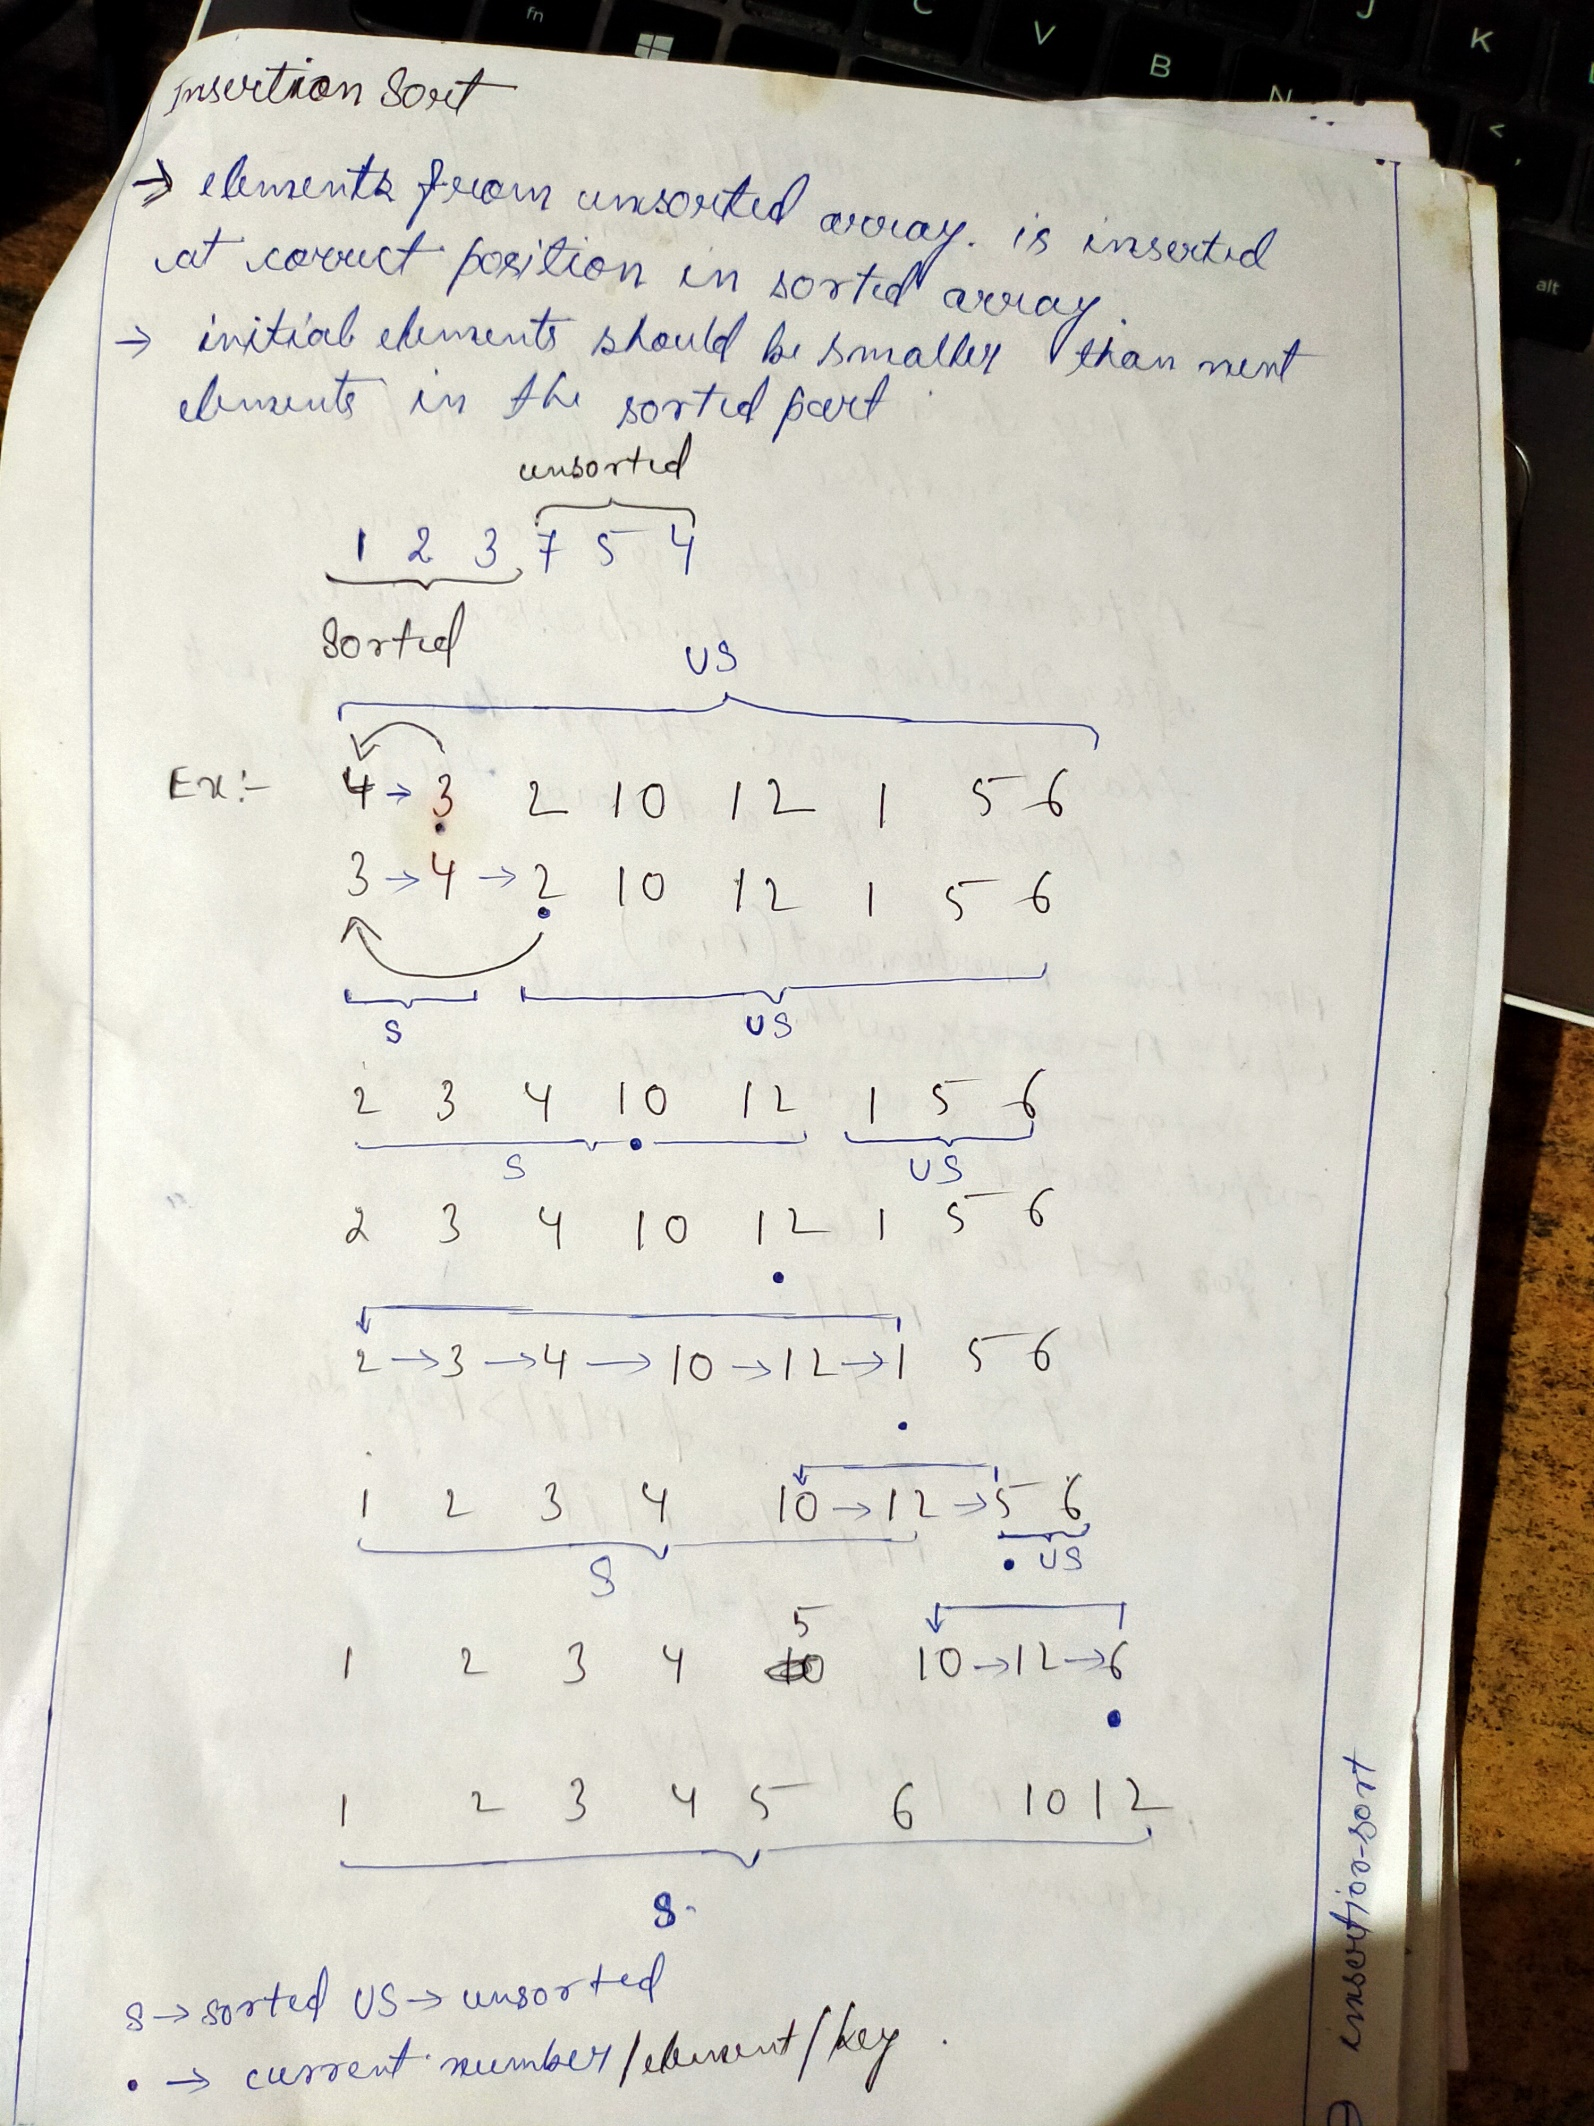 Insertion Sort
→ elements from unsorted array. is inserted
at correct position in sorted array.
→ initial elements should be smaller than next
elements in the sorted part
unsorted
1 2 3 7 5 4
Sorted
US
Ex:- 4 → 3 2 10 12 1 5 6
3 → 4 → 2 10 12 1 5 6
S US
2 3 4 10 12 1 5 6
S US
2 3 4 10 12 1 5 6
2 → 3 → 4 → 10 → 12 → 1 5 6
1 2 3 4 10 → 12 → 5 6
S US
5
1 2 3 4 10 10 → 12 → 6
1 2 3 4 5 6 10 12
S.
S → sorted US → unsorted
• → current number/element/key.
insertion-sort
fn
C
V
B
N
J
K
<
,
alt